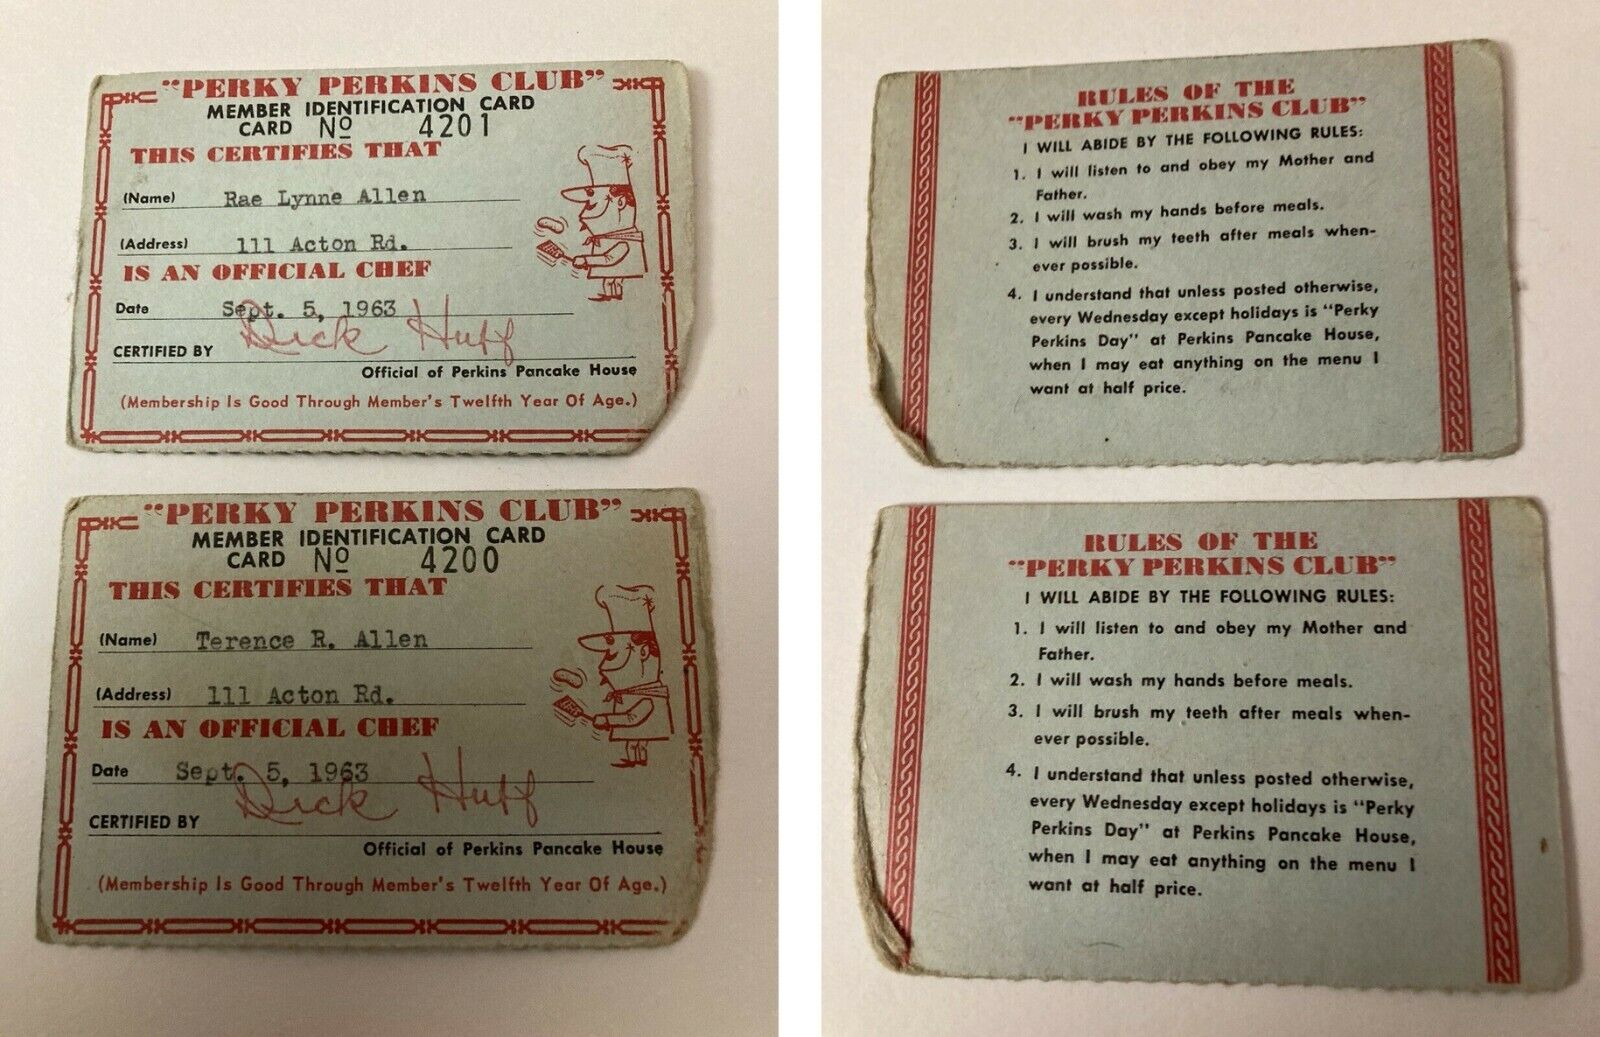 "PERKY PERKINS CLUB"
MEMBER IDENTIFICATION CARD
CARD Nº 4201
THIS CERTIFIES THAT
(Name) Rae Lynne Allen
(Address) 111 Acton Rd.
IS AN OFFICIAL CHEF
Date Sept. 5, 1963
CERTIFIED BY Dick Huff
Official of Perkins Pancake House
(Membership Is Good Through Member's Twelfth Year Of Age.)
"PERKY PERKINS CLUB"
MEMBER IDENTIFICATION CARD
CARD Nº 4200
THIS CERTIFIES THAT
(Name) Terence R. Allen
(Address) 111 Acton Rd.
IS AN OFFICIAL CHEF
Date Sept. 5, 1963
CERTIFIED BY Dick Huff
Official of Perkins Pancake House
(Membership Is Good Through Member's Twelfth Year Of Age.)
RULES OF THE
"PERKY PERKINS CLUB"
I WILL ABIDE BY THE FOLLOWING RULES:
1. I will listen to and obey my Mother and
Father.
2. I will wash my hands before meals.
3. I will brush my teeth after meals when-
ever possible.
4. I understand that unless posted otherwise,
every Wednesday except holidays is "Perky
Perkins Day" at Perkins Pancake House,
when I may eat anything on the menu I
want at half price.
RULES OF THE
"PERKY PERKINS CLUB"
I WILL ABIDE BY THE FOLLOWING RULES:
1. I will listen to and obey my Mother and
Father.
2. I will wash my hands before meals.
3. I will brush my teeth after meals when-
ever possible.
4. I understand that unless posted otherwise,
every Wednesday except holidays is "Perky
Perkins Day" at Perkins Pancake House,
when I may eat anything on the menu I
want at half price.